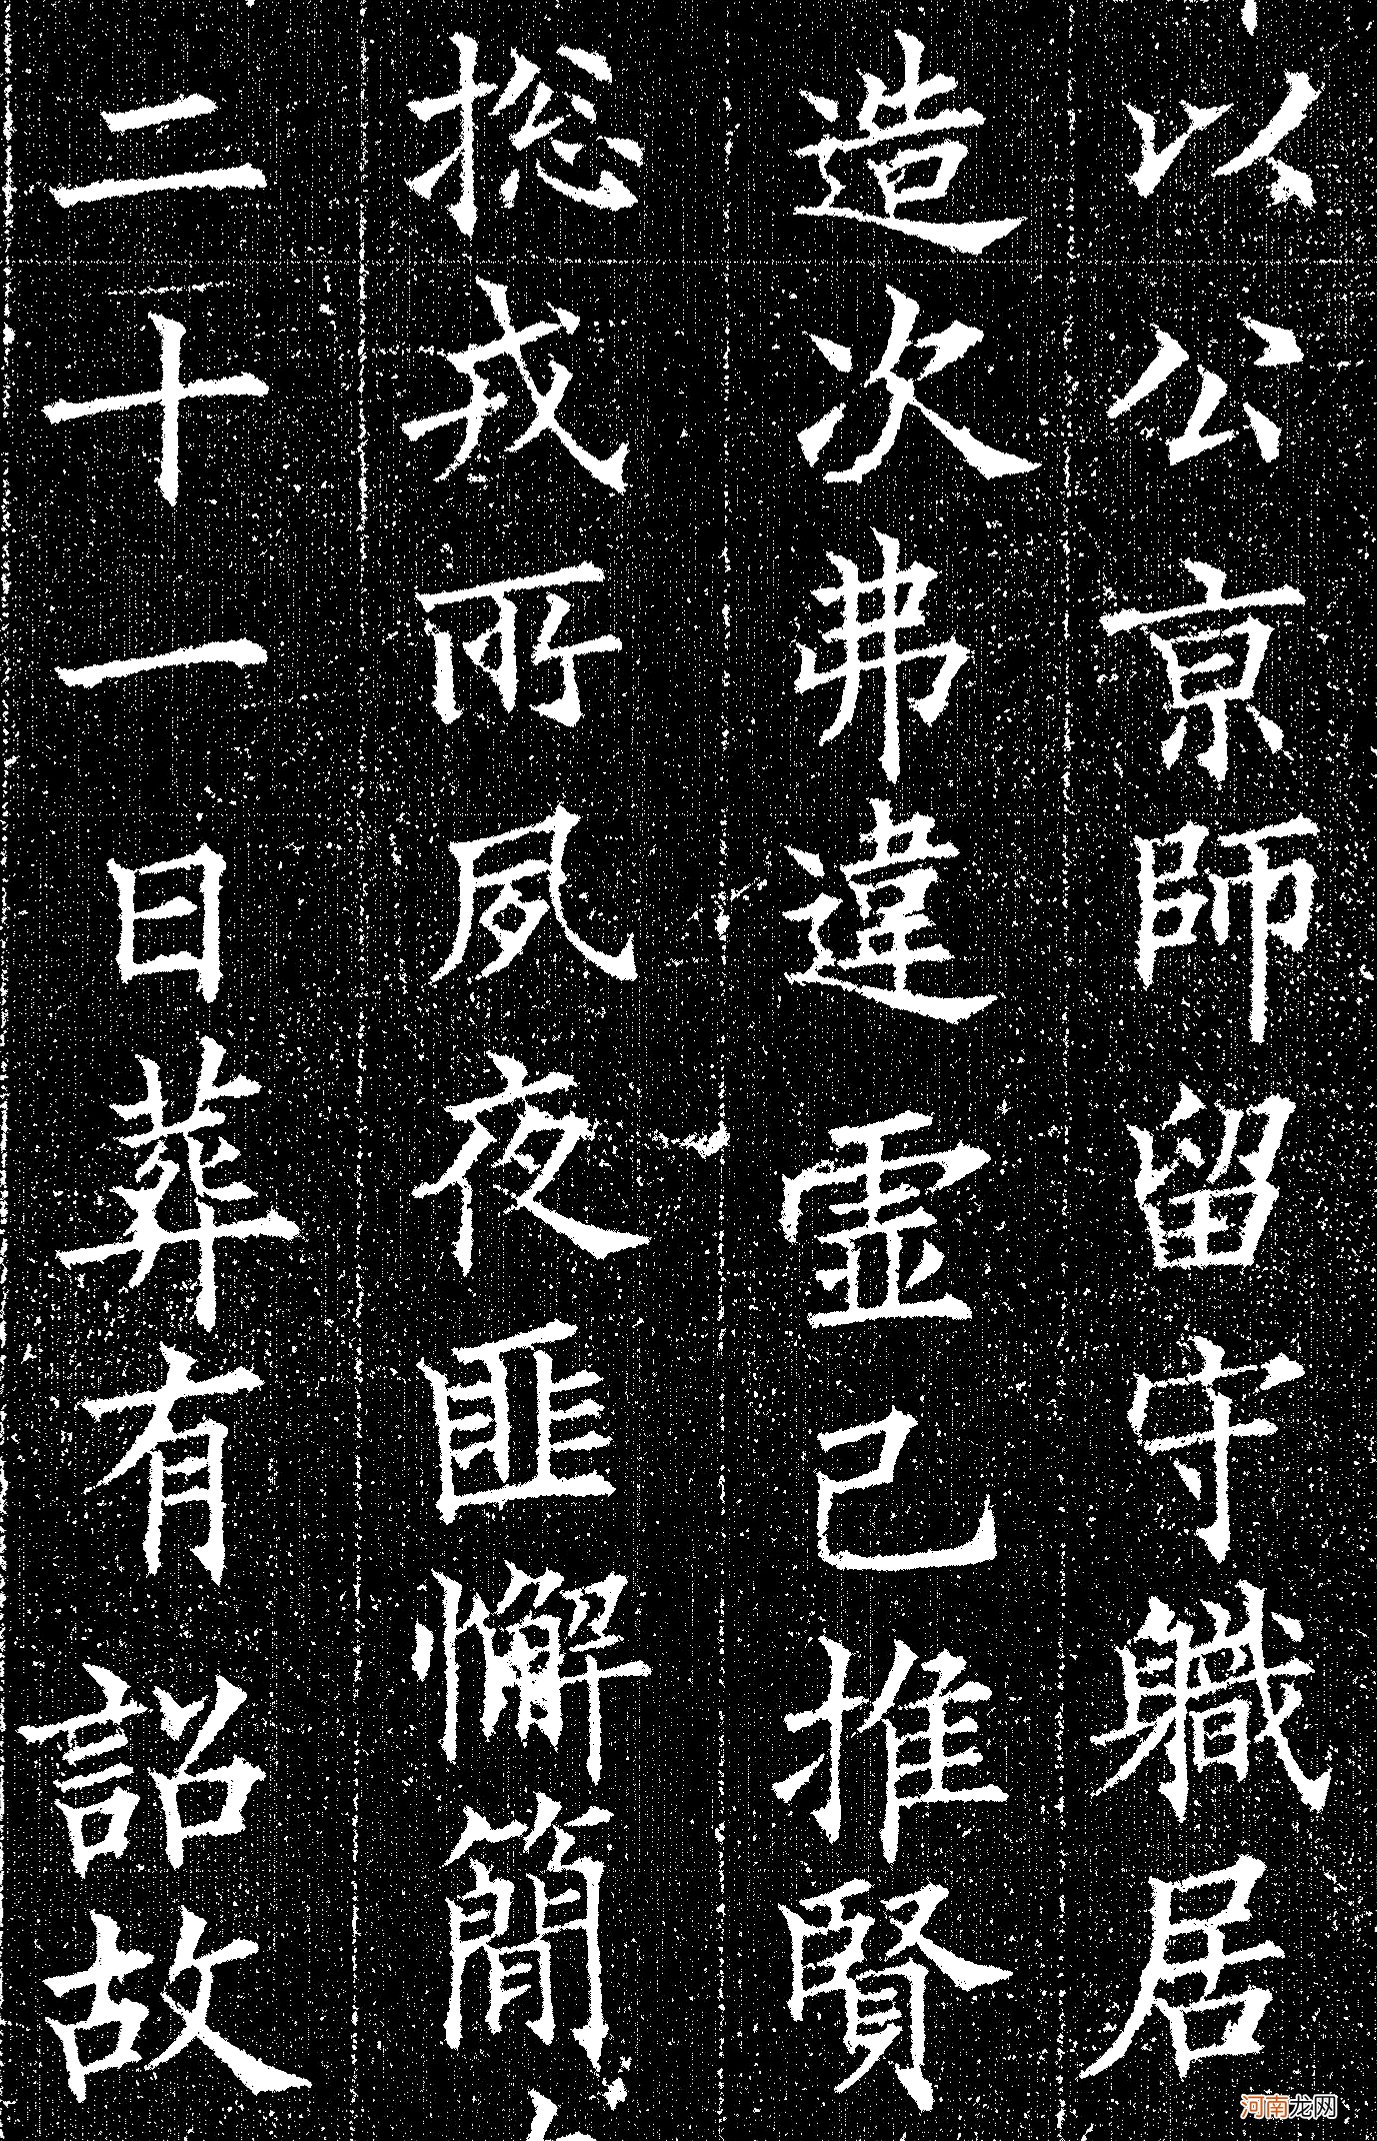 以公京師留守職居
造次弗違虛己推賢
揔戎所夙夜匪懈簡
二十一日葬有詔故
河南龙网